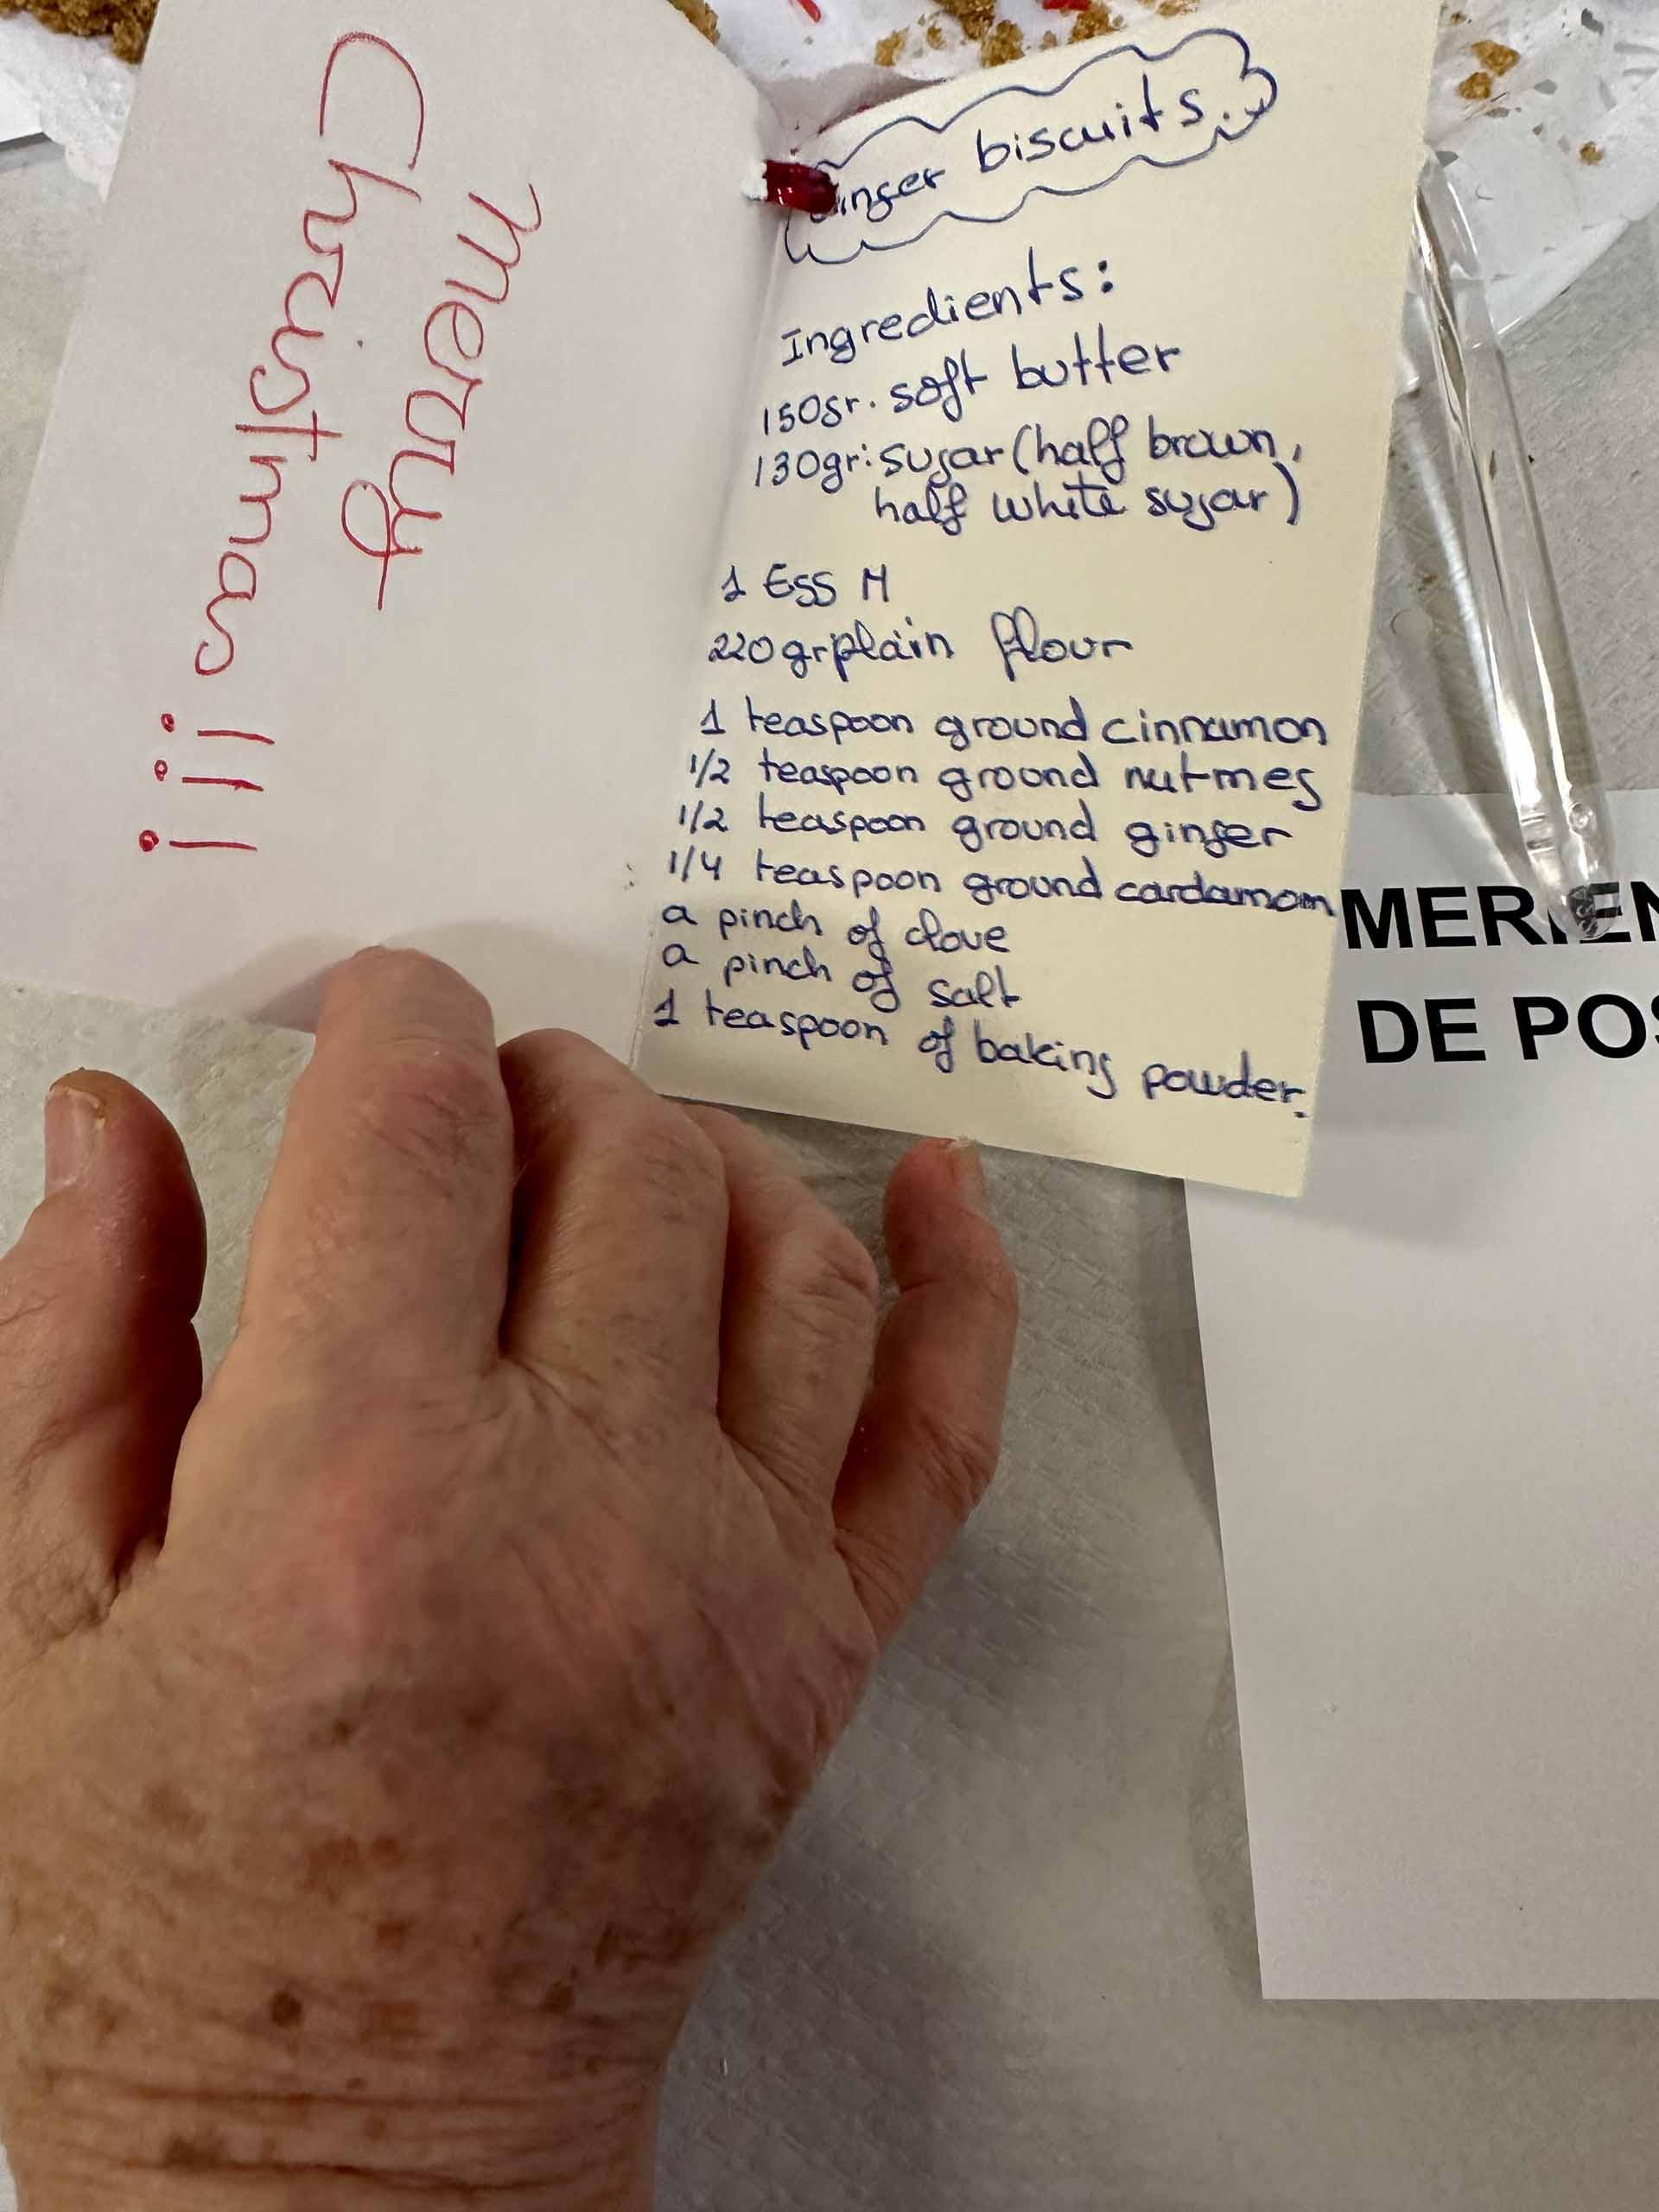 Merry
Christmas
!!!
Ginger biscuits.
Ingredients:
150gr. soft butter
130gr: sugar (half brown,
half white sugar)
1 Egg M
220 gr plain flour
1 teaspoon ground cinnamon
1/2 teaspoon ground nutmeg
1/2 teaspoon ground ginger
1/4 teaspoon ground cardamom
a pinch of clove
a pinch of salt
1 teaspoon of baking powder.
DE